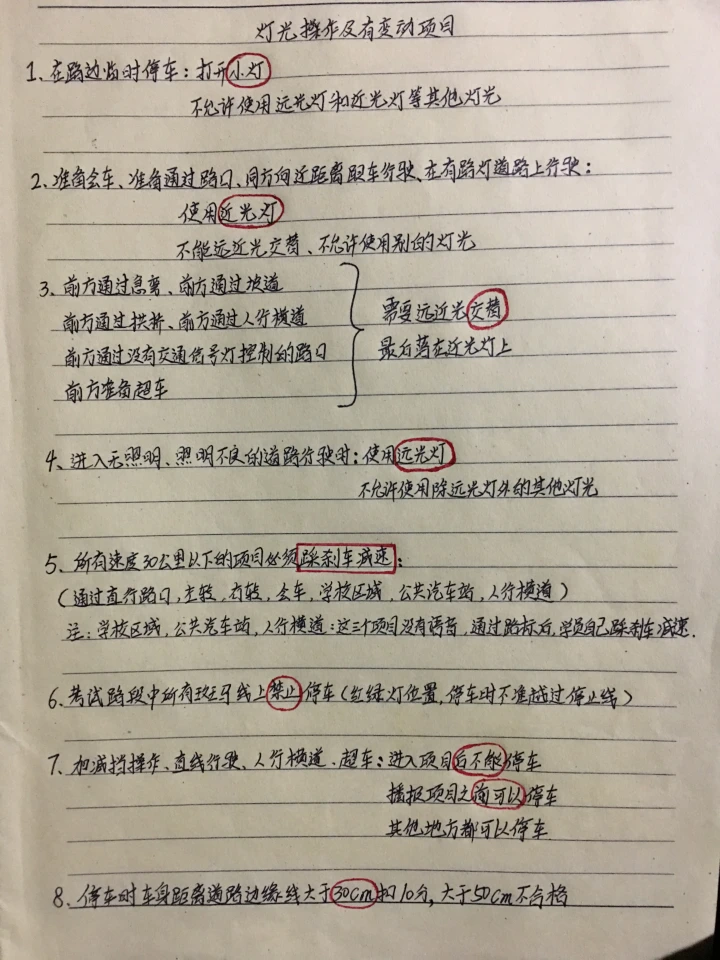 灯光操作及有变动项目
1、在路边临时停车：打开小灯
不允许使用远光灯和近光灯等其他灯光
2、准备会车、准备通过路口、同方向近距离跟车行驶、在有路灯道路上行驶：
使用近光灯
不能远近光交替、不允许使用别的灯光
3、前方通过急弯、前方通过坡道
前方通过拱桥、前方通过人行横道
前方通过没有交通信号灯控制的路口
前方准备超车
需要远近光交替
最后落在近光灯上
4、进入无照明、照明不良的道路行驶时：使用远光灯
不允许使用除远光灯外的其他灯光
5、所有速度30公里以下的项目必须踩刹车减速：
（通过直行路口，左转，右转，会车，学校区域，公共汽车站，人行横道）
注：学校区域，公共汽车站，人行横道：这三个项目没有语音，通过路标后，学员自己踩刹车减速.
6、考试路段中所有斑马线上禁止停车（红绿灯位置，停车时不准越过停止线）
7、加减挡操作、直线行驶、人行横道、超车：进入项目后不能停车
播报项目之前可以停车
其他地方都可以停车
8、停车时车身距离道路边缘线大于30cm扣10分，大于50cm不合格